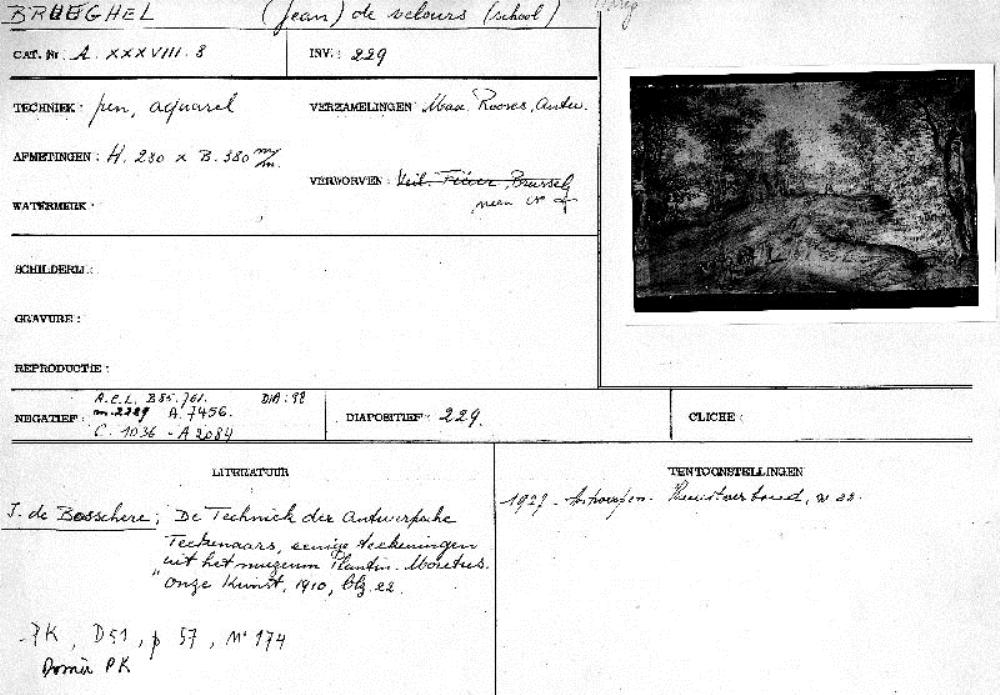 BRUEGHEL (Jean) de velours (school)
CAT. Nr. A. XXXVIII. 8
INV.: 229
TECHNIEK: pen, aquarel
VERZAMELINGEN Max. Rooses, Antw.
AFMETINGEN: H. 230 x B. 380 m/m.
VERWORVEN: Veil. Fiévez, Brussel
WATERMERK
SCHILDERIJ:
GRAVURE:
REPRODUCTIE:
NEGATIEF: A.C.L. B85.761. DIA: 98
m. 2229 A. 7456.
C. 1036 - A 2084
DIAPOSITIEF 229.
CLICHE:
LITERATUUR
J. de Bosschere; De Techniek der Antwerpsche
Teekenaars, eenige teekeningen
uit het museum Plantin-Moretus.
"Onze Kunst, 1910, blz. 22.
PK, D51, p 57, N° 174
PK
TENTOONSTELLINGEN
1927 - Antwerpen. Kunstverbond, n